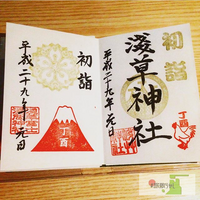 初詣
淺草神社
平成二十九年元日
丁酉
初詣
平成二十九年元日
丁酉